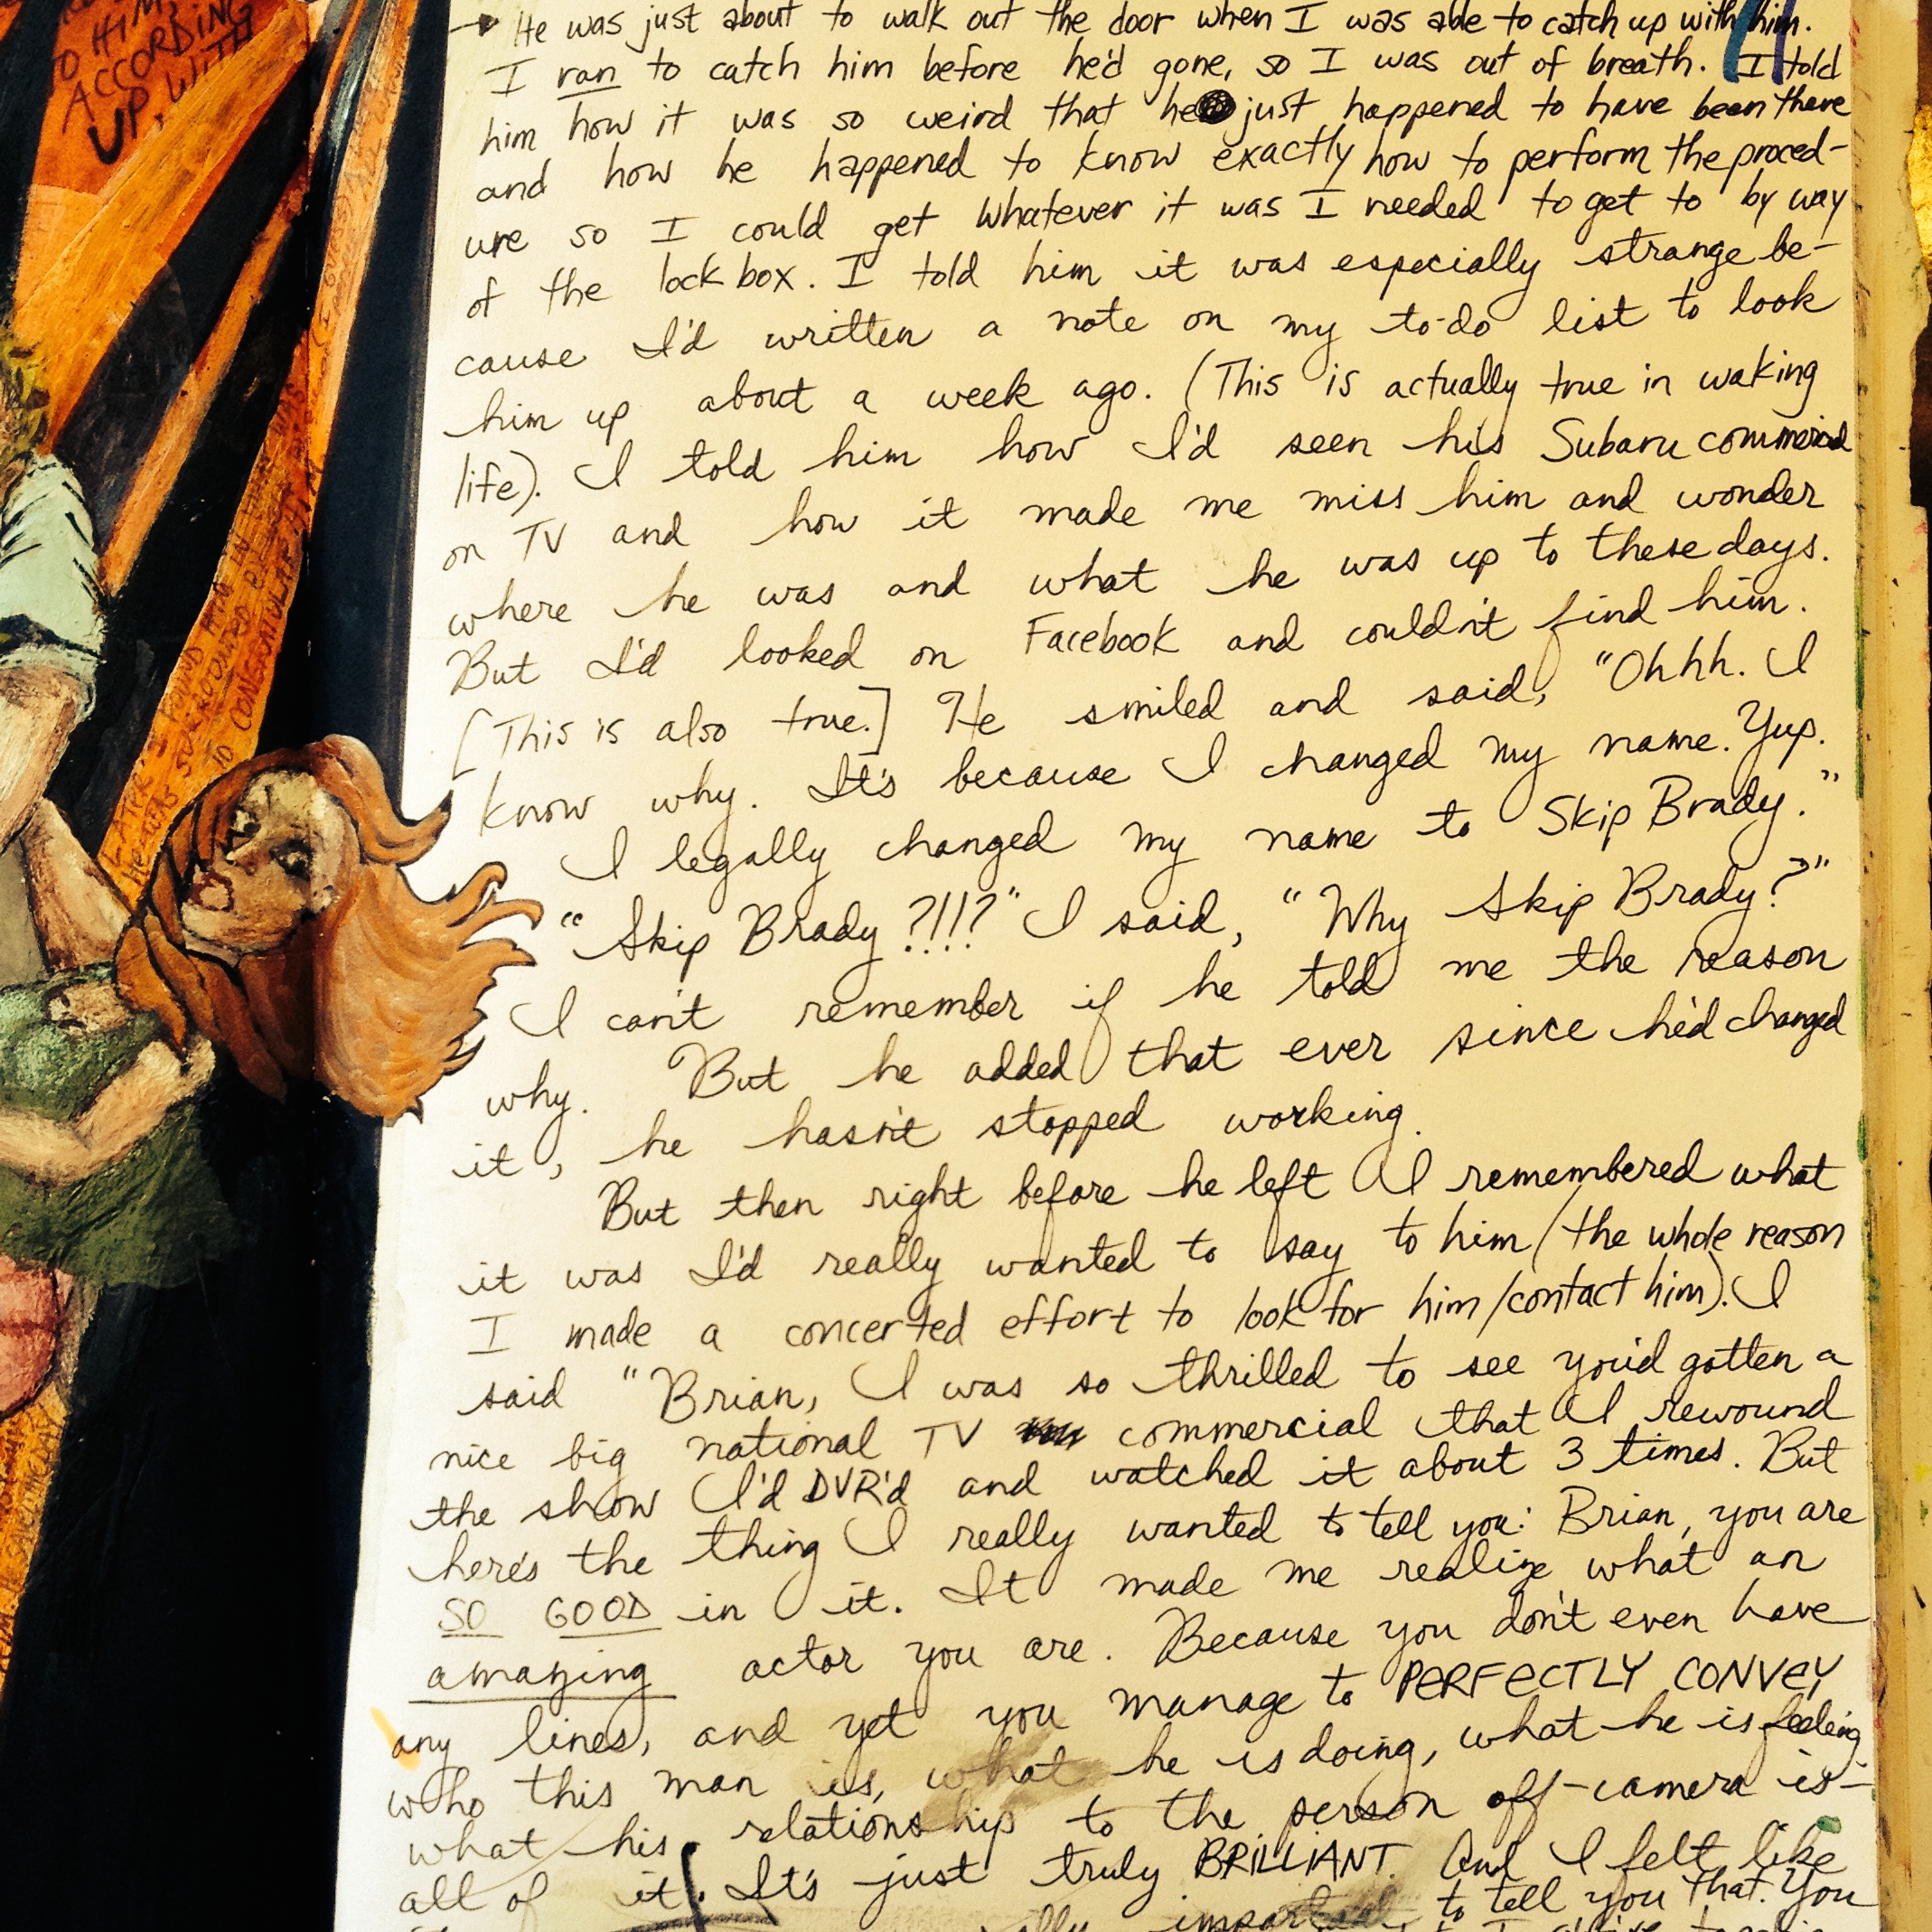 TO HIM,
ACCORDING
UP, WITH
→ He was just about to walk out the door when I was able to catch up with him.
I ran to catch him before he'd gone, so I was out of breath. I told
him how it was so weird that he just happened to have been there
and how he happened to know exactly how to perform the proced-
ure so I could get whatever it was I needed to get to by way
of the lock box. I told him it was especially strange be-
cause I'd written a note on my to-do list to look
him up about a week ago. (This is actually true in waking
life). I told him how I'd seen his Subaru commercial
on TV and how it made me miss him and wonder
where he was and what he was up to these days.
But I'd looked on Facebook and couldn't find him.
[This is also true.] He smiled and said, "Ohhh. I
know why. It's because I changed my name. Yup.
I legally changed my name to Skip Brady."
"Skip Brady?!!?" I said, "Why Skip Brady?"
I can't remember if he told me the reason
why. But he added that ever since he'd changed
it, he hasn't stopped working.
But then right before he left I remembered what
it was I'd really wanted to say to him (the whole reason
I made a concerted effort to look for him/contact him). I
said "Brian, I was so thrilled to see you'd gotten a
nice big national TV commercial that I rewound
the show I'd DVR'd and watched it about 3 times. But
here's the thing I really wanted to tell you: Brian, you are
SO GOOD in it. It made me realize what an
amazing actor you are. Because you don't even have
any lines, and yet you manage to PERFECTLY CONVEY
who this man is, what he is doing, what he is feeling
what his relationship to the person off-camera is-
all of it. It's just truly BRILLIANT. And I felt like
to tell you that. You